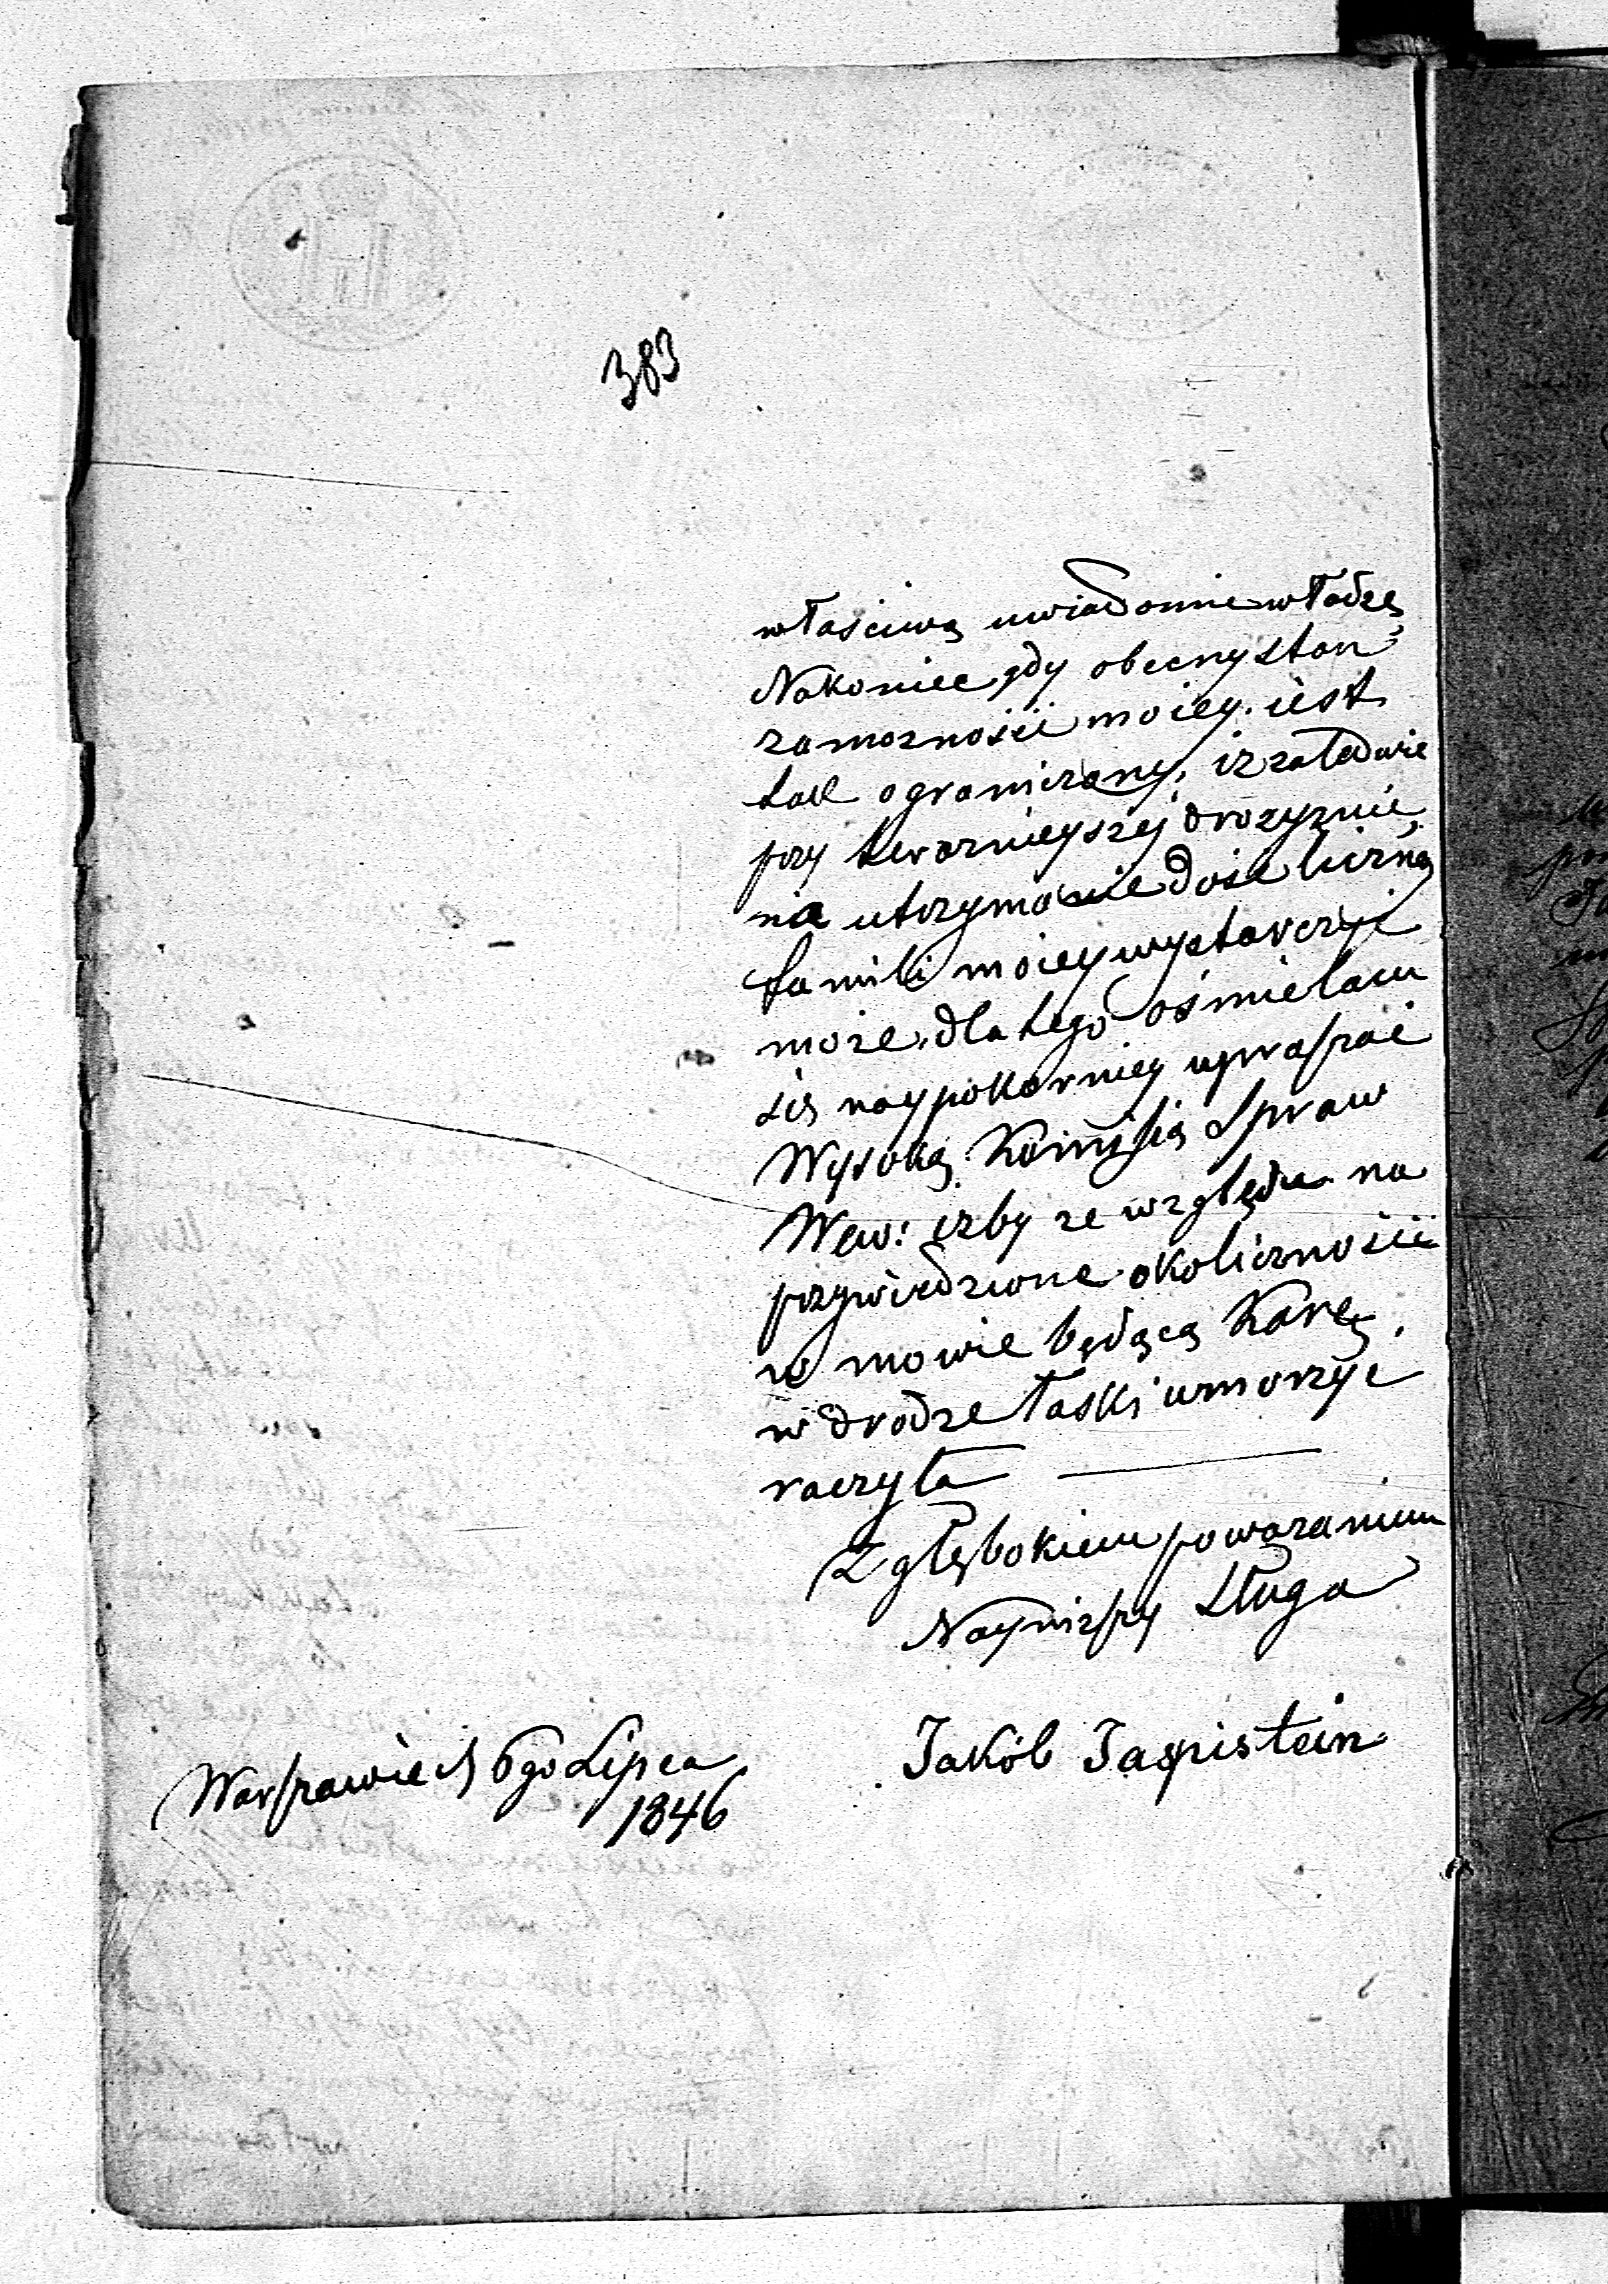 383
właściwą uwiadomie władzę
Nakoniec gdy obecny stan
zamozności moiey iest
tak ograniczony, iz zaledwie
przy terazniejszej drozyznie
na utrzymanie dość liczną
familii moiey wystarczyć
moze, dlatego ośmielam
się naypokorniey upraszać
Wysoką Kommissią Spraw
Wew: izby ze względu na
przywiedzione okoliczności
w mowie będącą Karę
w drodze łaski umorzyć
raczyła
Z głębokiem powazaniem
Nayniższy Sługa
Jakób Jaspistein
Warszawie d 6go Lipca
1846